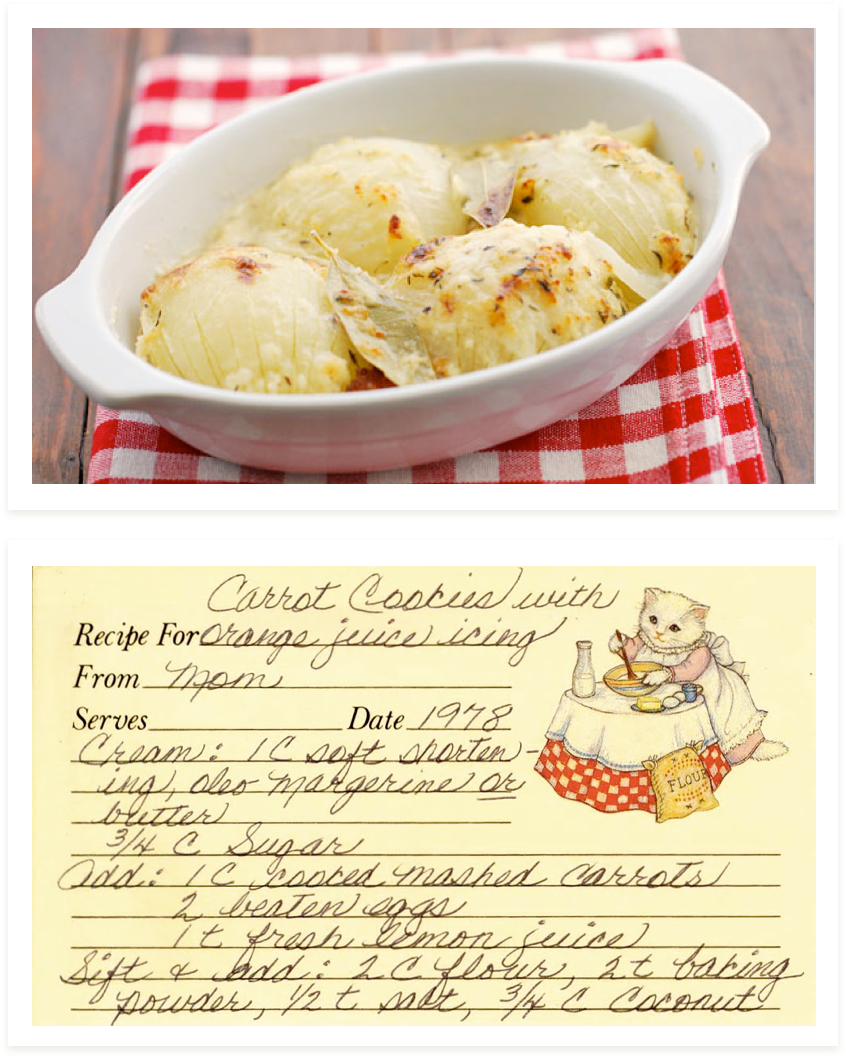 Carrot Cookies with
Recipe For orange juice icing
From Mom
Serves Date 1978
Cream: 1 C soft shorten-
ing, oleo margerine or
butter
3/4 C Sugar
Add: 1 C cooked mashed carrots
2 beaten eggs
1 t fresh lemon juice
Sift & add: 2 C flour, 2 t baking
powder, 1/2 t salt, 3/4 C Coconut
FLOUR